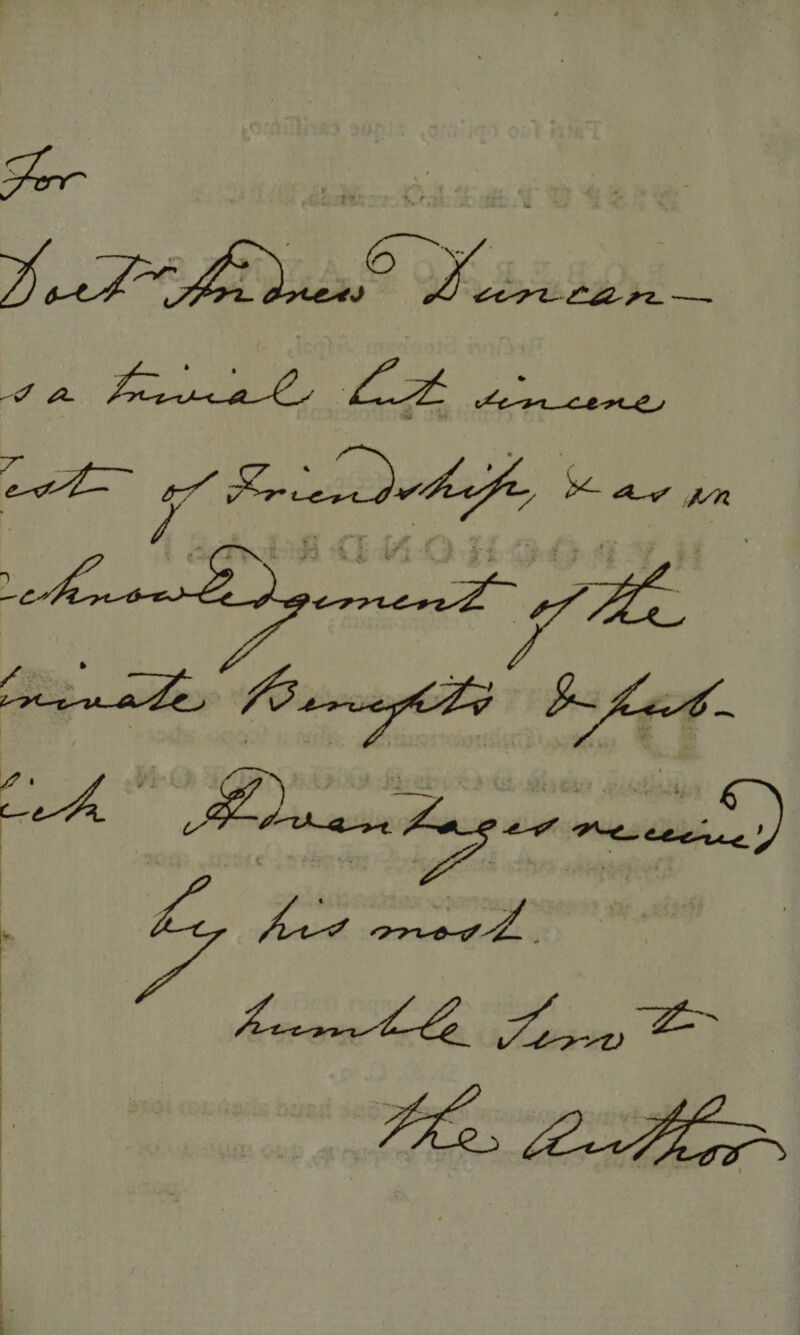 For
Doctr Andrew Duncan —
s a trivial but sincere
est of Friendship, & as an
cknowledgement of the
private Benefits & pub-
lick Advantages receiv'd
by his most
humble Servt
the Author